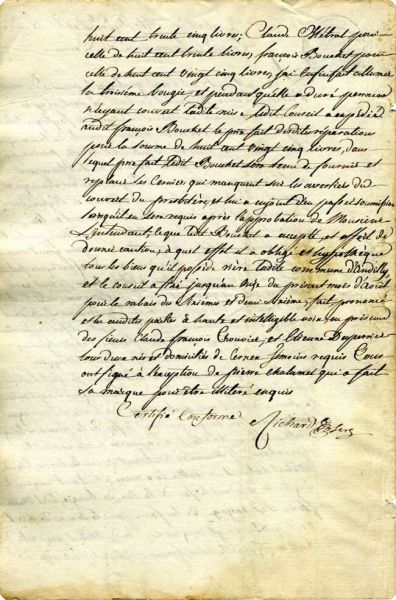 huit cent trente cinq livres; Claude Métral pour
celle de huit cent trente livres, françois Bouchet pour
celle de huit cent vingt cinq livres, fai enfin fait allumer
la troisième bougie, et pendant qu'elle a duré personne
n'ayant couvert ladte mise ledit Conseil a expédié
audit françois Bouchet le prix fait desdites réparations
pour la somme de huit cent vingt cinq livres, dans
lequel prix fait ledit Bouchet sera tenu de fournir et
replacer les qui manquent sur les du
couvert du presbitère, et lui a enjoint d'en passer soumission
lorsqu'il en sera requis après l'approbation de Monsieur
L'intendant, ce que ledt Bouchet a accepté, et offert de
donner caution, à quel effet il a obligé et hypothéqué
tous les biens qu'il possède rière ladite commune d'
et le conseil a fixé jusqu'au onze du présent mois d'Août
pour le rabais du sixième et demi sixième, fait, prononcé
et lu audites parties à haute et intelligible voix, en présence
des sieurs Claude françois et Etienne Duperrier
tous deux nés et domiciliés de témoins requis Tous
ont signé à l'exception de pierre Chalamel qui a fait
sa marque pour être illitéré enquis
Certifié Conforme Richard